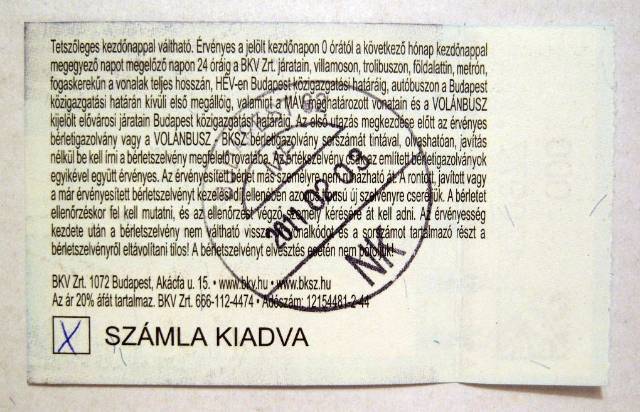 Tetszőleges kezdőnappal váltható. Érvényes a jelölt kezdőnapon 0 órától a következő hónap kezdőnappal
megegyező napot megelőző napon 24 óráig a BKV Zrt. járatain, villamoson, trolibuszon, földalattin, metrón,
fogaskerekűn a vonalak teljes hosszán, HÉV-en Budapest közigazgatási határáig, autóbuszon a Budapest
közigazgatási határán kívüli első megállóig, valamint a MÁV meghatározott vonatain és a VOLÁNBUSZ
kijelölt elővárosi járatain Budapest közigazgatási határáig. Az első utazás megkezdése előtt az érvényes
bérletigazolvány vagy a VOLÁNBUSZ - BKSZ bérletigazolvány sorszámát tintával, olvashatóan, javítás
nélkül be kell írni a bérletszelvény megfelelő rovatába. Az értékszelvény csak az említett bérletigazolványok
egyikével együtt érvényes. Az érvényesített bérlet más személyre nem ruházható át. A rontott, javított vagy
a már érvényesített bérletszelvényt kezelési díj ellenében azonos típusú új szelvényre cseréljük. A bérletet
ellenőrzéskor fel kell mutatni, és az ellenőrzést végző személy kérésére át kell adni. Az érvényesség
kezdete után a bérletszelvény nem váltható vissza. A vonalkódot és a sorszámot tartalmazó részt a
bérletszelvényről eltávolítani tilos! A bérletszelvényt elvesztés esetén nem pótoljuk!
BKV Zrt. 1072 Budapest, Akácfa u. 15. • www.bkv.hu • www.bksz.hu
Az ár 20% áfát tartalmaz. BKV Zrt. 666-112-4474 • Adószám: 12154481-2-44
X SZÁMLA KIADVA
2011 02 03
NK